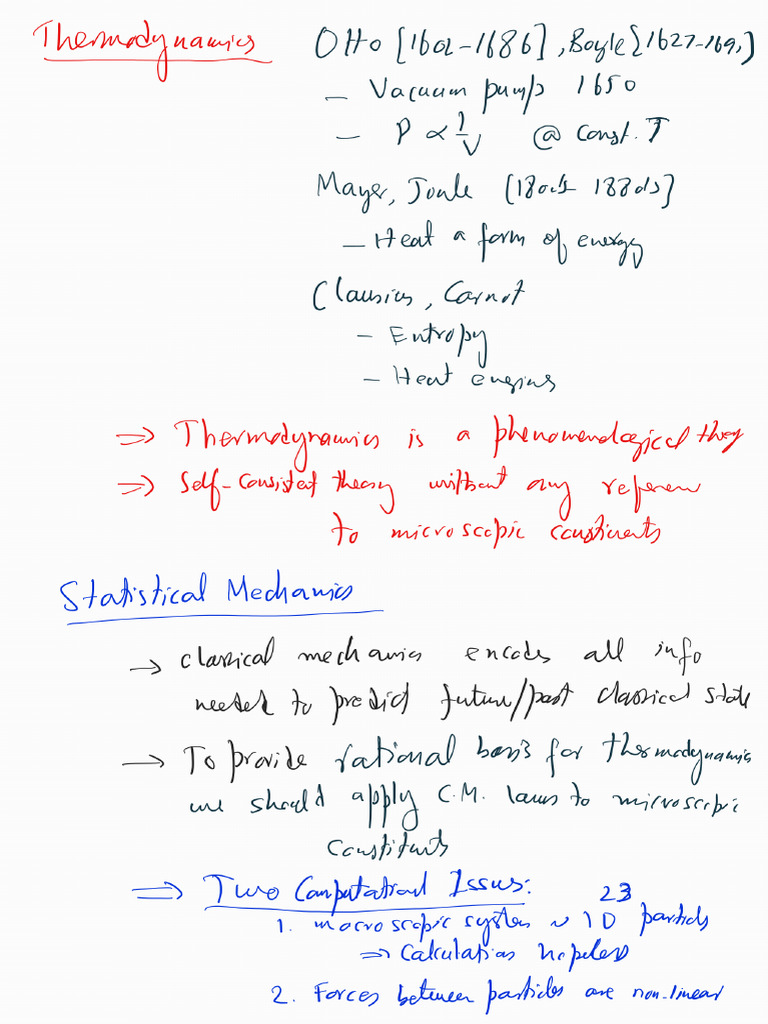 Thermodynamics
Otto [1602-1686], Boyle [1627-1691]
- Vacuum pump 1650
- P ∝ 1/V @ Const. T
Mayer, Joule [1800's 1880s]
- Heat a form of energy
Clausius, Carnot
- Entropy
- Heat engines
⇒ Thermodynamics is a phenomenological theory
⇒ Self-consistent theory without any reference
to microscopic constituents
Statistical Mechanics
→ Classical mechanics encodes all info
needed to predict future/past classical state
→ To provide rational basis for thermodynamics
we should apply C.M. laws to microscopic
constituents
⇒ Two Computational Issues:
1. macroscopic system ~ 10^23 particles
⇒ Calculations hopeless
2. Forces between particles are non-linear